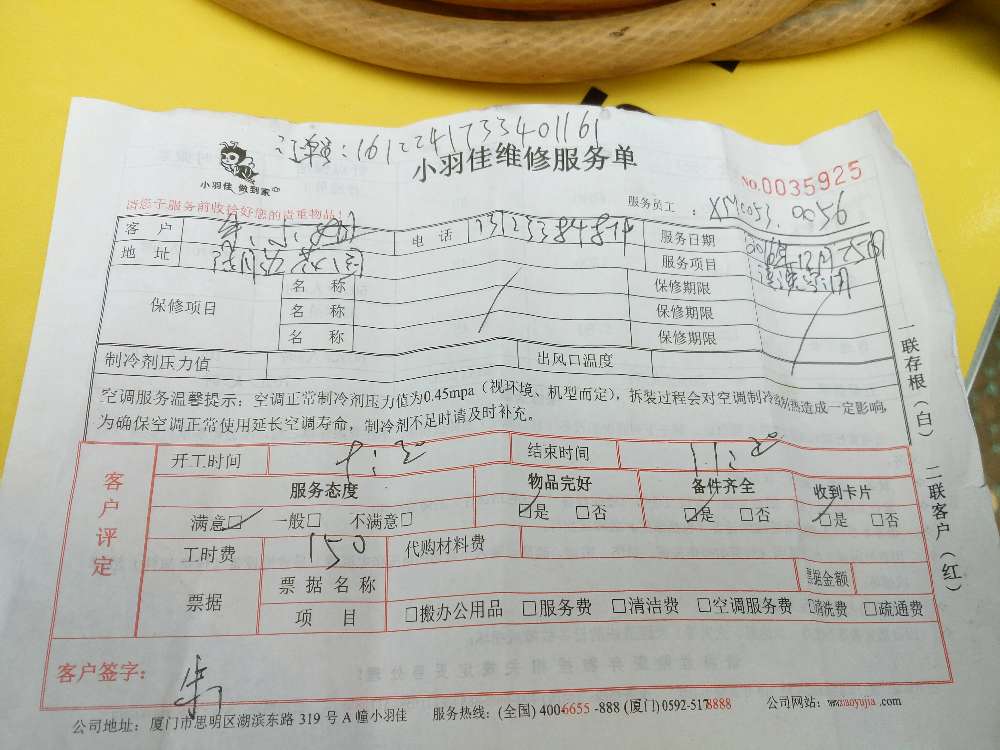 订单号:1612241733401161
小羽佳 做到家
小羽佳维修服务单
NO.0035925
请您于服务前收给好您的贵重物品!
服务员工 : XM0053. 0056
客 户 电 话 服务日期 2016年12月25日
地 址 服务项目
保修项目 名 称 保修期限
名 称 保修期限
名 称 保修期限
制冷剂压力值 出风口温度
空调服务温馨提示:空调正常制冷剂压力值为0.45mpa(视环境、机型而定),拆装过程会对空调制冷制热造成一定影响,
为确保空调正常使用延长空调寿命,制冷剂不足时请及时补充。
一联存根(白) 二联客户(红)
客户评定
开工时间 9:30 结束时间 11:30
服务态度 物品完好 备件齐全 收到卡片
满意□ 一般□ 不满意□ □是 □否 □是 □否 □是 □否
工时费 150 代购材料费
票据 票据名称 票据金额
项 目 □搬办公用品 □服务费 □清洁费 □空调服务费 □清洗费 □疏通费
客户签字: 朱
公司地址:厦门市思明区湖滨东路 319 号 A 幢小羽佳 服务热线:(全国) 400-6655-888 (厦门) 0592-5178888 公司网站:www.xiaoyujia.com